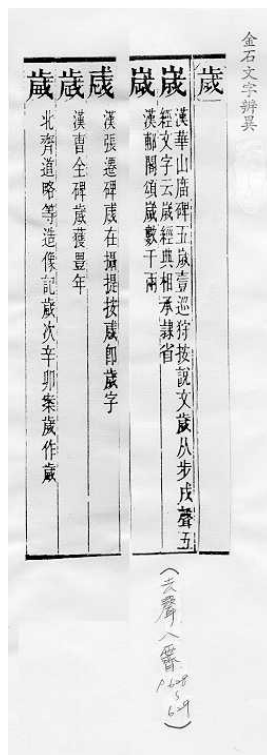 金石文字辨異
歲
嵗 漢華山廟碑五嵗壹巡狩按說文歲从步戌聲五
經文字云嵗經典相承隸省
漢郙閣頌嵗數千兩
漢張遷碑 在攝提按 即歲字
歲 漢曹全碑歲獲豐年
歳 北齊道略等造像記歳次辛卯案歲作歳
(去聲八霽 P.628 S 629)